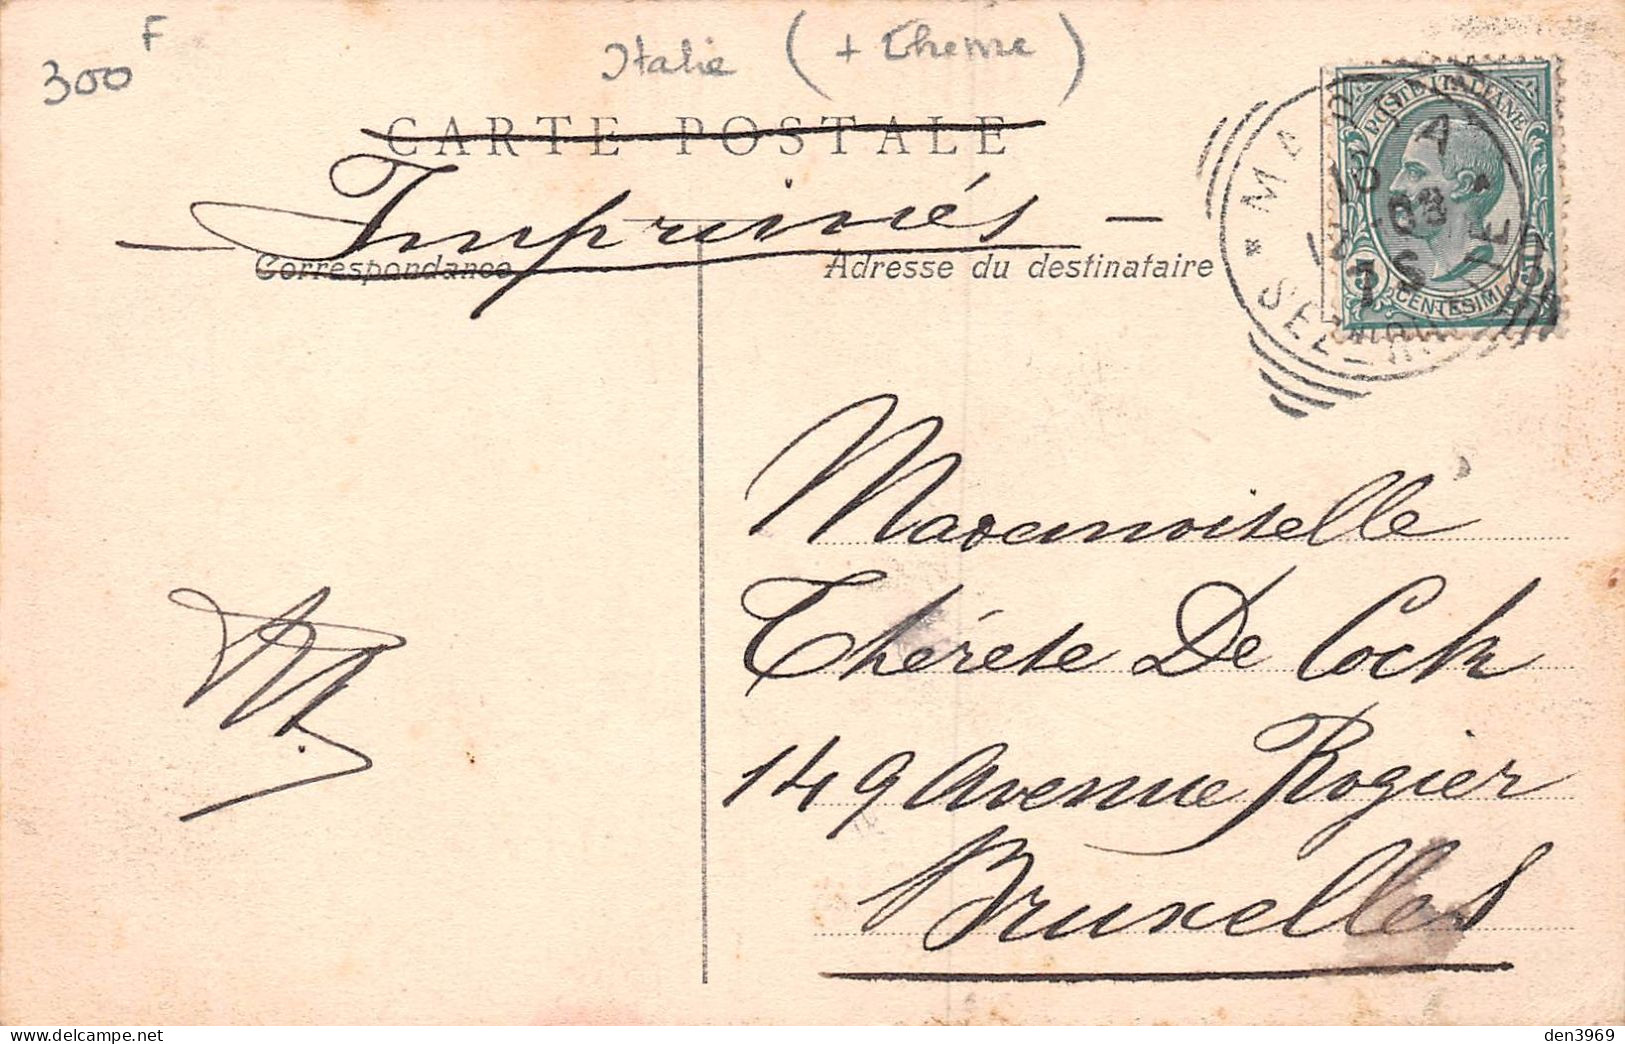 300 F
Italie (+ Theme)
CARTE POSTALE
Imprimés
Correspondance
Adresse du destinataire
POSTE ITALIANE
CENTESIMI
5
Mademoiselle
Thérèse De Cock
149 Avenue Rogier
Bruxelles
den3969